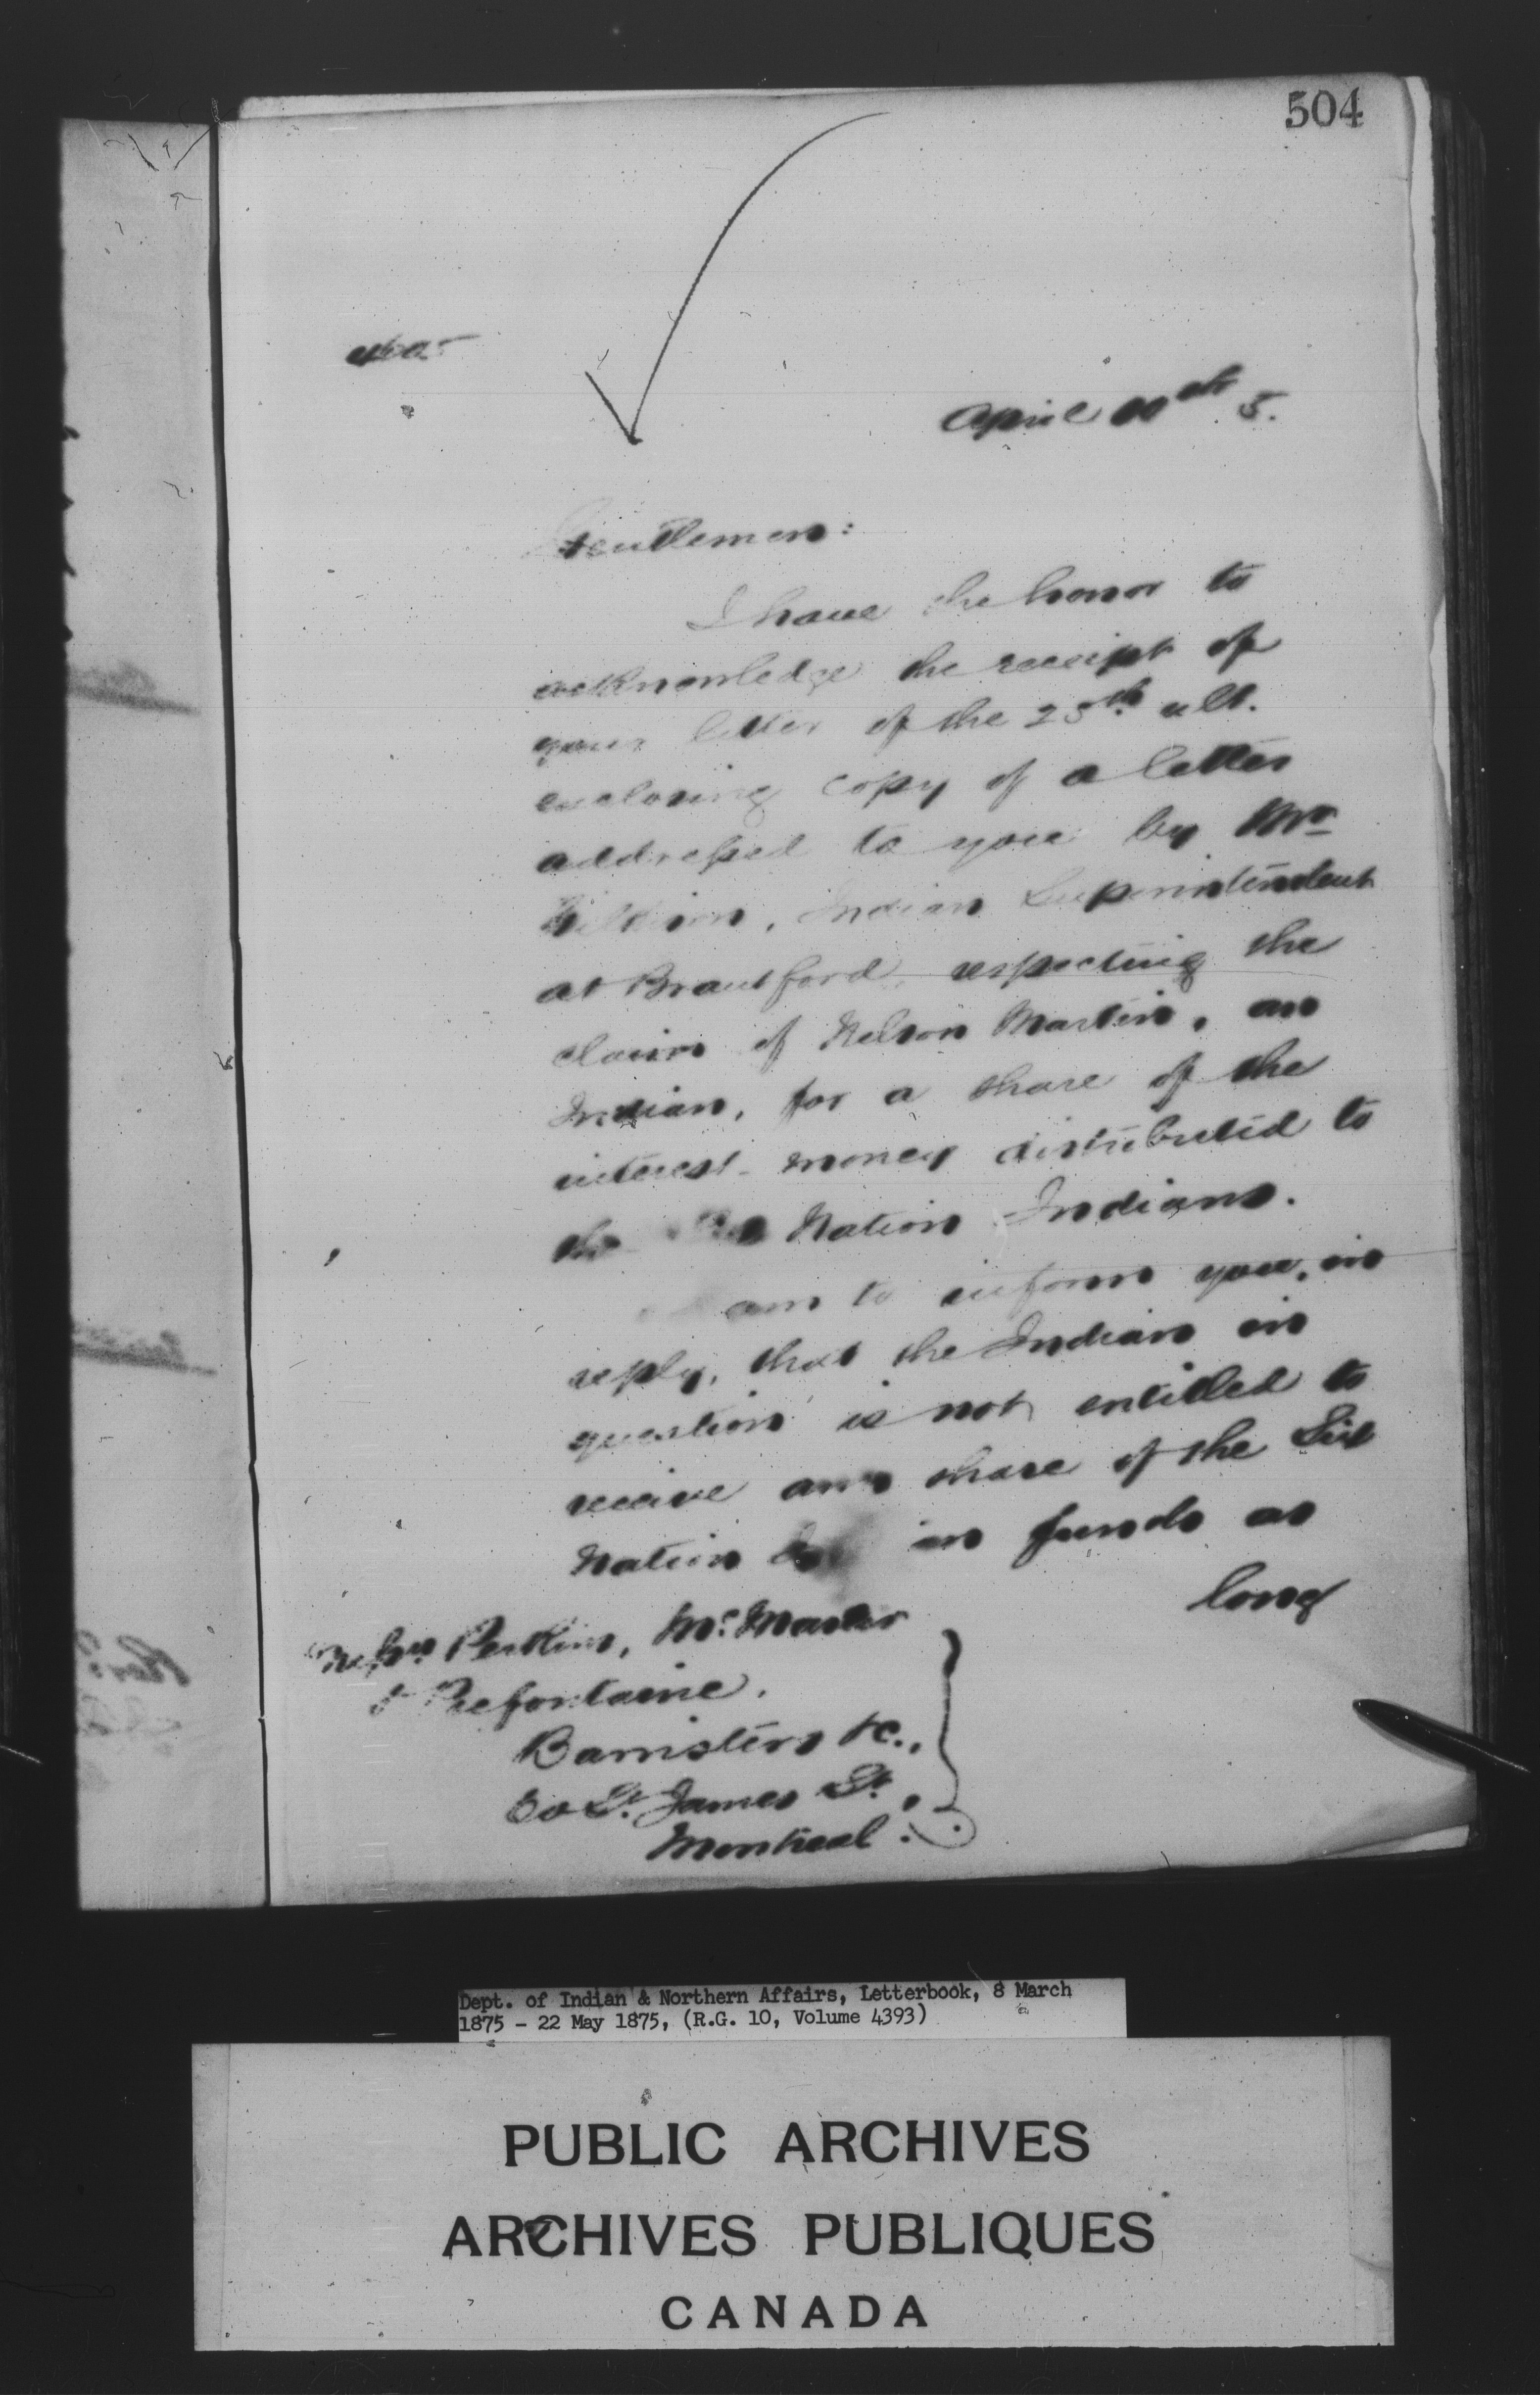 504
April 5.
Gentlemen:
I have the honor to
acknowledge the receipt of
your letter of the 25th. ult.
enclosing copy of a letter
addressed to you by Mr
Gilkison, Indian Superintendent
at Brantford, respecting the
claim of Nelson Martin, an
Indian, for a share of the
interest money distributed to
the Nation Indians.
am to inform you, in
reply, that the Indian in
question is not entitled to
receive any share of the Six
Nation funds as
long
Messrs Perkins, McMaster
& Prefontaine.
Barristers &c.,
St. James St.,
Montreal.
Dept. of Indian & Northern Affairs, Letterbook, 8 March
1875 - 22 May 1875, (R.G. 10, Volume 4393)
PUBLIC ARCHIVES
ARCHIVES PUBLIQUES
CANADA